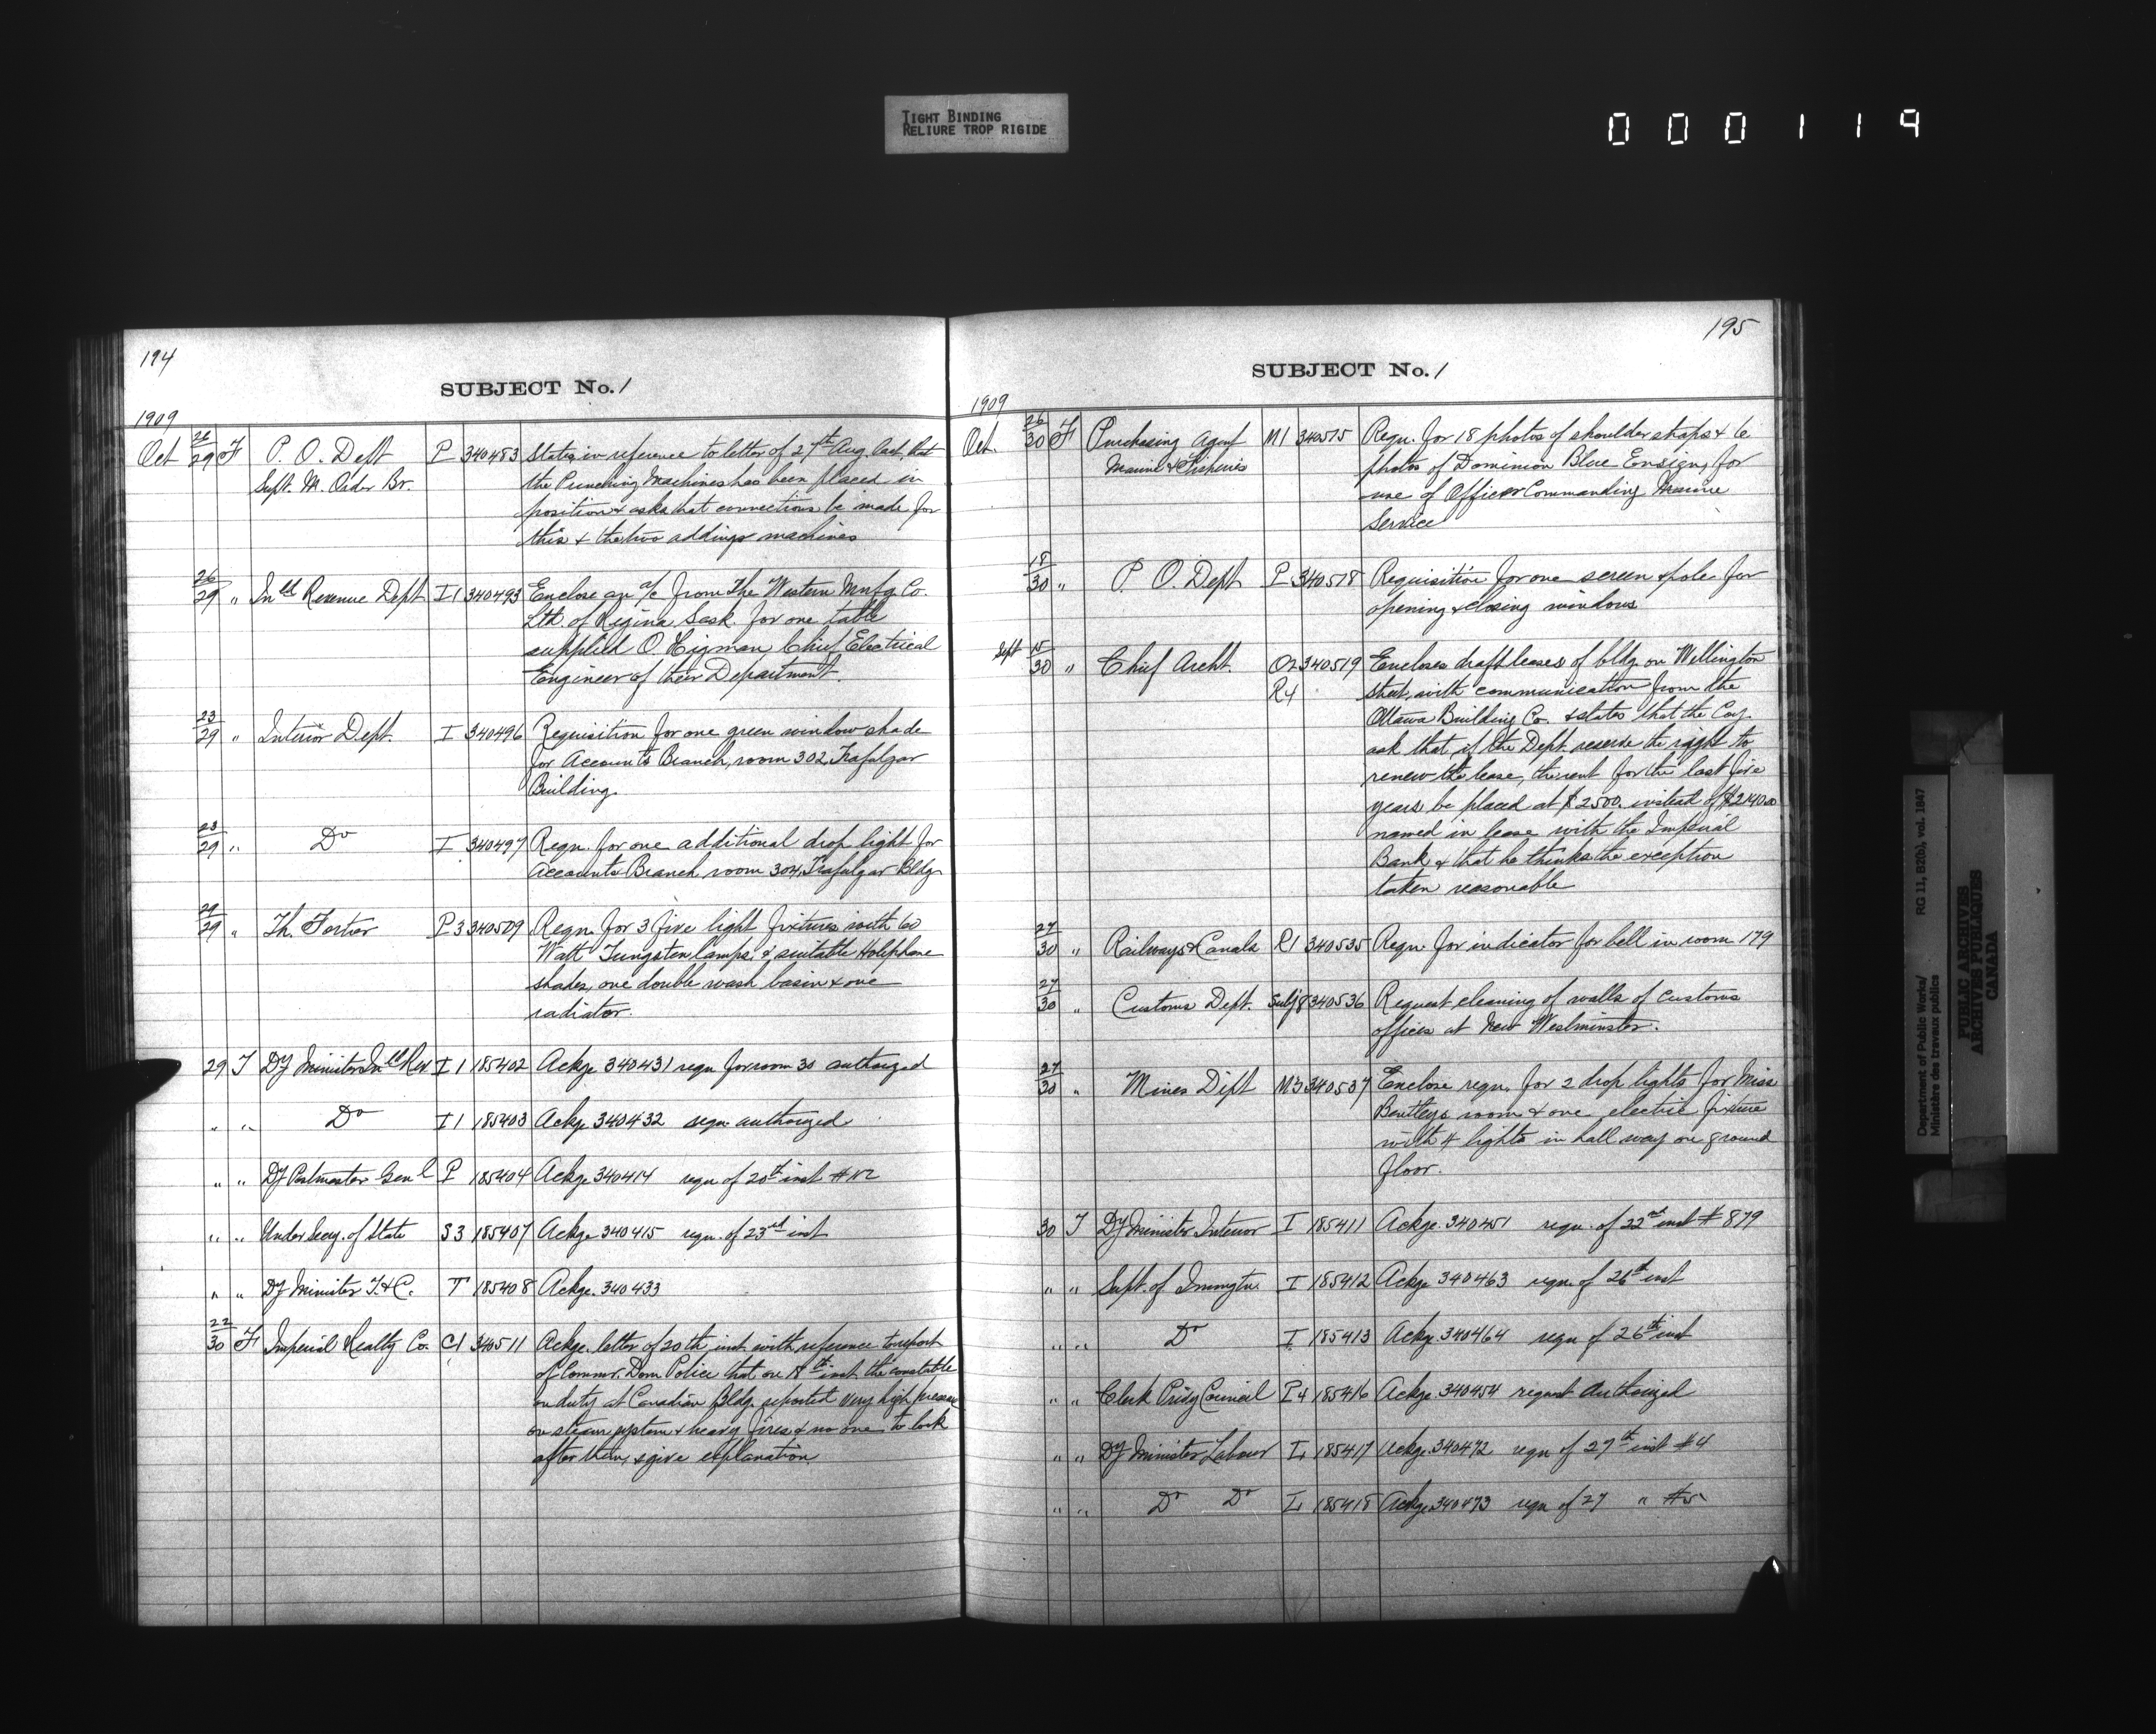 TIGHT BINDING
RELIURE TROP RIGIDE
000119
194
SUBJECT No. 1
1909
Oct 26/29 F P. O. Dept P 340483 States in reference to letter of 27th Aug. last, that
Supt. M. Order Br. the Punching Machines has been placed in
position & asks that connections be made for
this & the two adding machines
26/29 " Inld Revenue Dept I1 340493 Enclose an a/c from the Western Mnfg Co.
Ltd. of Regina, Sask. for one table
supplied O. Higman, Chief Electrical
Engineer of their Department.
23/29 " Interior Dept. I 340496 Requisition for one green window shade
for Accounts Branch, room 302, Trafalgar
Building.
23/29 " Do I 340497 Reqn. for one additional drop light for
Accounts Branch room 304, Trafalgar Bldg
29/29 " Th. Fortier P3 340509 Reqn. for 3 five light fixtures with 60
Watt Tungsten lamps, & suitable Holophane
shades, one double wash basin & one
radiator.
29 T Dy Minister Inld Rev I1 185402 Ackge 340431 reqn for room 30 authorized
" " Do I1 185403 Ackge 340432 reqn authorized
" " Dy Postmaster Genl P 185404 Ackge 340414 reqn of 20th inst #12
" " Under Secy. of State S3 185407 Ackge 340415 reqn. of 23rd inst
" " Dy Minister T.&C. T 185408 Ackge. 340433
22/30 F Imperial Realty Co. C1 340511 Ackge. letter of 20th inst with reference to report
of Commr. Dom Police that on 18th inst. the constable
on duty at Canadian Bldg. reported very high pressure
on steam system & heavy fires & no one to look
after them, & give explanation.
195
SUBJECT No. 1
1909
Oct. 26/30 F Purchasing Agent M1 340515 Reqn. for 18 photos of shoulder straps & 6
Marine & Fisheries photos of Dominion Blue Ensign, for
use of Officer Commanding Marine
Service
18/30 " P. O. Dept P 340518 Requisition for one screen & pole for
opening & closing windows
Sept 15/30 " Chief Archt. O2 340519 Encloses draft leases of bldg on Wellington
R4 street, with communication from the
Ottawa Building Co. & states that the Coy.
ask that if the Dept. reserve the right to
renew the lease, the rent for the last five
years be placed at $2500. instead of $2140.00
named in lease with the Imperial
Bank & that he thinks the exception
taken reasonable
27/30 " Railways & Canals R1 340535 Reqn. for indicator for bell in room 179
27/30 " Customs Dept. Subj 8 340536 Request cleaning of walls of Customs
offices at New Westminster.
27/30 " Mines Dept M3 340537 Enclose reqn. for 2 drop lights for Miss
Bentleys room & one electric fixture
with 4 lights in hall way on ground
floor.
30 T Dy Minister Interior I 185411 Ackge. 340451 reqn. of 22nd inst #879
" " Supt. of Immigtn. I 185412 Ackge 340463 reqn. of 26th inst
" " Do I 185413 Ackge 340464 reqn of 26th inst
" " Clerk Privy Council P4 185416 Ackge 340454 request authorized
" " Dy Minister Labour L 185417 Ackge. 340472 reqn of 27th inst #4
" " Do Do L 185418 Ackge 340473 reqn of 27 " #5
Department of Public Works/
Ministère des travaux publics
RG 11, B2(b), vol. 1847
PUBLIC ARCHIVES
ARCHIVES PUBLIQUES
CANADA